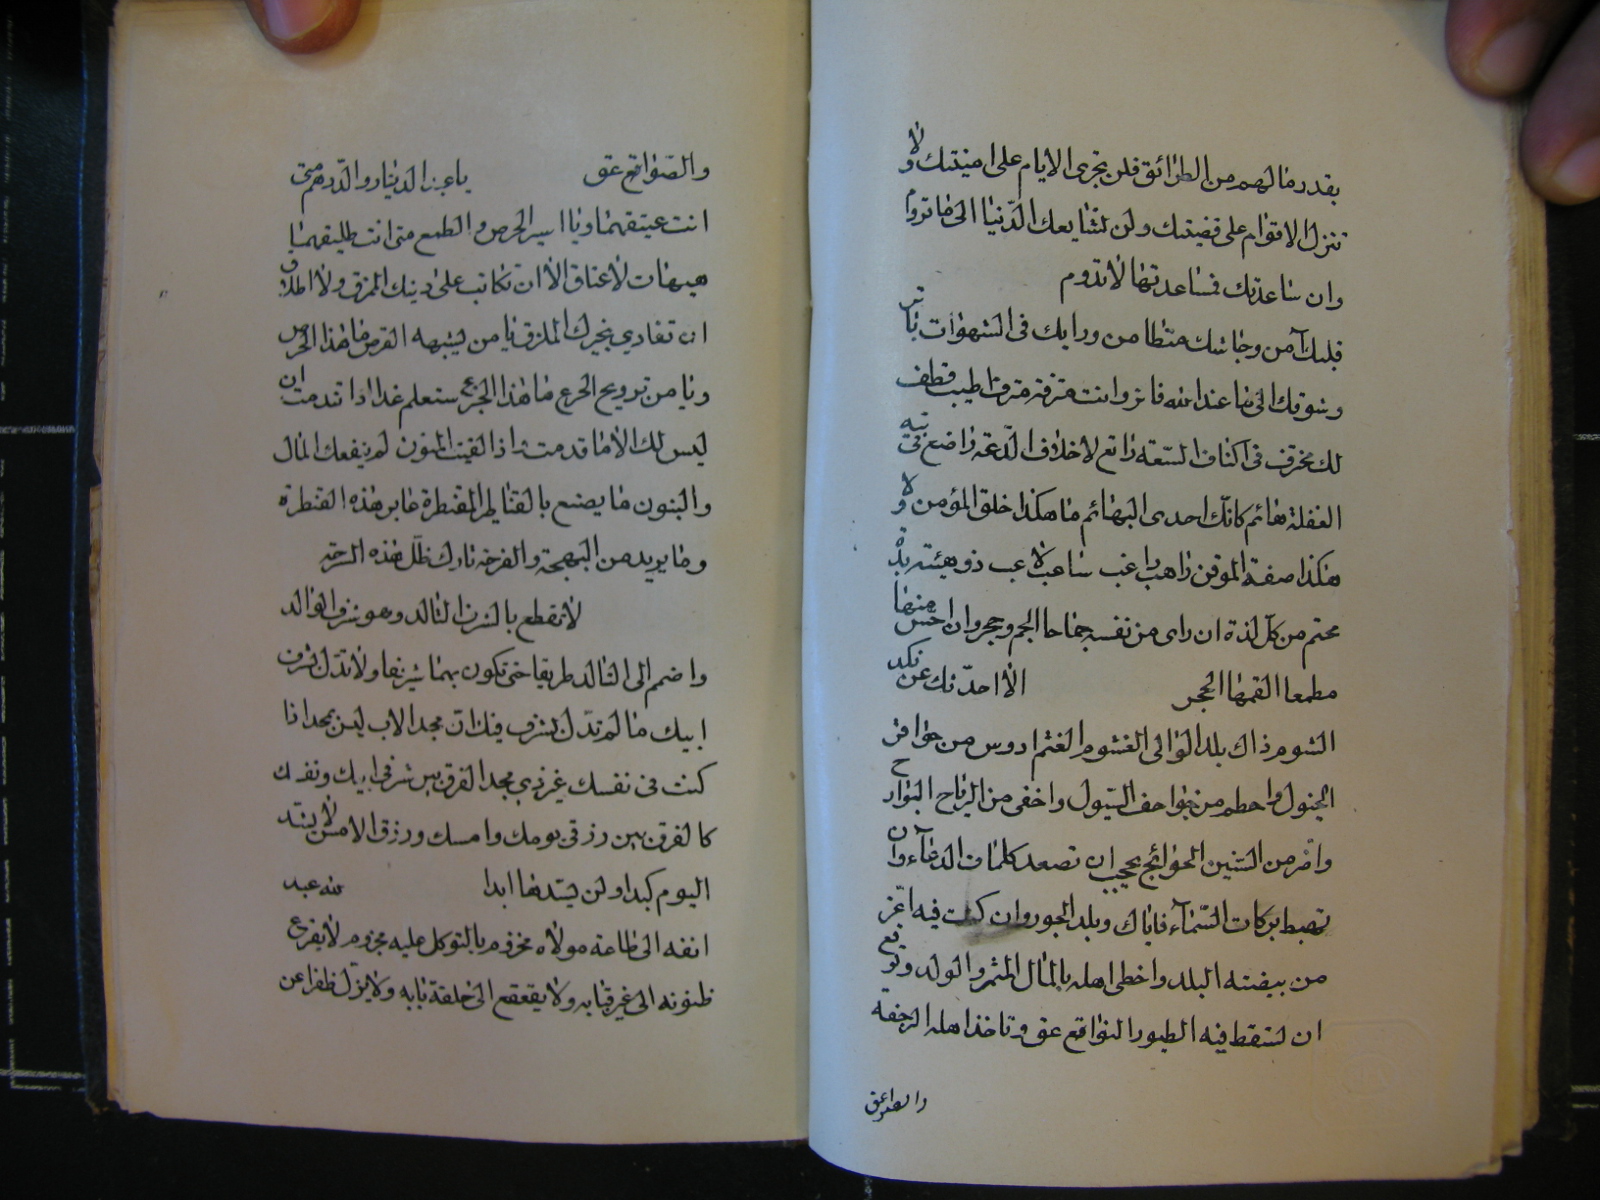 بقدر ما لهم من الطرائق فلن تجری الایام علی امنیتك ولا
تنزل الاقوام علی قضیتك ولن تشایعك الدّنیا الی ما تروم
وان ساعدتك فساعدتها لا تدوم
قلبك آمن وجاشك متطامن ورایك فی الشهوات باتر
وشوقك الی ما عند الله فاتر وانت مترفه مترف اطیب قطف
لك مخرف فی اکناف السّعة راتع لاخلاف الدّعة راضع فی تیه
الغفلة هائم کانّك احدی البهائم ما هکذا خلق المؤمن ولا
هکذا صفة الموقن راهب راغب ساغب لاغب ذو هیئة بذّة
محتم من کلّ لذة ان رای من نفسه جماحا الجم وحجر وان احسّ منها
مطمعا القمها الحجر الا احدّثك عن نکد
الشوم ذاك بلد الوالی الغشوم الغثم ادوس من حوافر
الخیول واحطم من جواحف السّیول واخفی من الریاح البوارح
واضر من السّنین الحوائج یحجب ان تصعد کلمات الدعآء وان
تهبط برکات السّمآء فایاك وبلد الجور وان کنت فیه اعزّ
من بیضة البلد واحظی اهله بالمال المثمر والولد وتوقع
ان تسقط فیه الطیور النواقع عق وتاخذ اهله الرجفة
والصواعق
والصّواقع عق یا عبد الدّینار والدّرهم متی
انت عتیقهما ویا اسیر الحرص والطمع متی انت طلیقهما
هیهات لا عتاق الا ان تکاتب علی دینك الممزق ولا اطلاق
ان تفادی بخیرك الملزق یا من یشبعه القرص ما هذا الحرص
ویا من ترویه الجرع ما هذا الجزع ستعلم غدا اذا تندمت ان
لیس لك الا ما قدمت واذا لقیت المنون لم ینفعك المال
والبنون ما یصنع بالقناطیر المقنطرة عابر هذه القنطرة
وما یرید من البهجة والفرحة تارك ظلّ هذه السرحة
لا تقطع بالشرف التالد وهو شرف الوالد
واضمم الی التالد طریفا حتی تکون بهما شریفا ولا تدلّ بشرف
ابیك ما لم تدّل بشرف فیك انّ مجد الاب لیس بمجد اذا
کنت فی نفسك غیر ذی مجد الفرق بین شرفی ابیك ونفسك
کالفرق بین رزقی یومك وامسك ورزق الامس لا یسد
الیوم کبدا ولن یسدها ابدا لله عبد
انفه الی طاعة مولاه مخزوم بالتوکل علیه مجزوم لا یفزع
ظنونه الی غیر قبابه ولا یقعقع الی حلقة بابه ولا یزل ظفرا عن